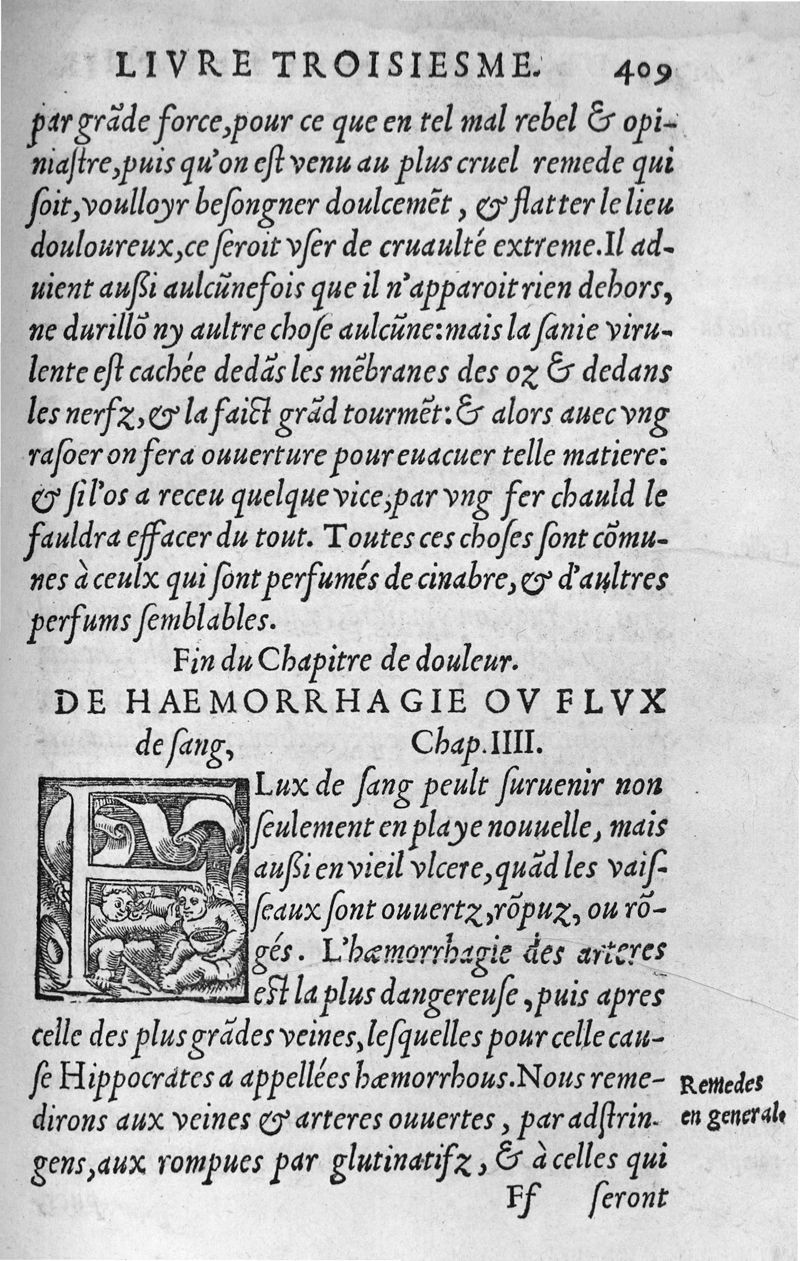 LIVRE TROISIESME. 409
par grãde force, pour ce que en tel mal rebel & opi-
niaſtre, puis qu'on eſt venu au plus cruel remede qui
ſoit, voulloyr beſongner doulcemẽt, & flatter le lieu
douloureux, ce ſeroit vſer de cruaulté extreme. Il ad-
uient außi aulcũnefois que il n'apparoit rien dehors,
ne durillõ ny aultre choſe aulcũne: mais la ſanie viru-
lente eſt cachée dedãs les mẽbranes des oz & dedans
les nerfz, & la faict grãd tourmẽt: & alors auec vng
raſoer on fera ouuerture pour euacuer telle matiere:
& ſi l'os a receu quelque vice, par vng fer chauld le
fauldra effacer du tout. Toutes ces choſes ſont cõmu-
nes à ceulx qui ſont perfumés de cinabre, & d'aultres
perfums ſemblables.
Fin du Chapitre de douleur.
DE HAEMORRHAGIE OV FLVX
de ſang, Chap. IIII.
FLux de ſang peult ſuruenir non
ſeulement en playe nouuelle, mais
außi en vieil vlcere, quãd les vaiſ-
ſeaux ſont ouuertz, rõpuz, ou rõ-
gés. L'hæmorrhagie des arteres
eſt la plus dangereuſe, puis apres
celle des plus grãdes veines, leſquelles pour celle cau-
ſe Hippocrates a appellées hæmorrhous. Nous reme-
dirons aux veines & arteres ouuertes, par adſtrin-
gens, aux rompues par glutinatifz, & à celles qui
Remedes
en general.
Ff ſeront